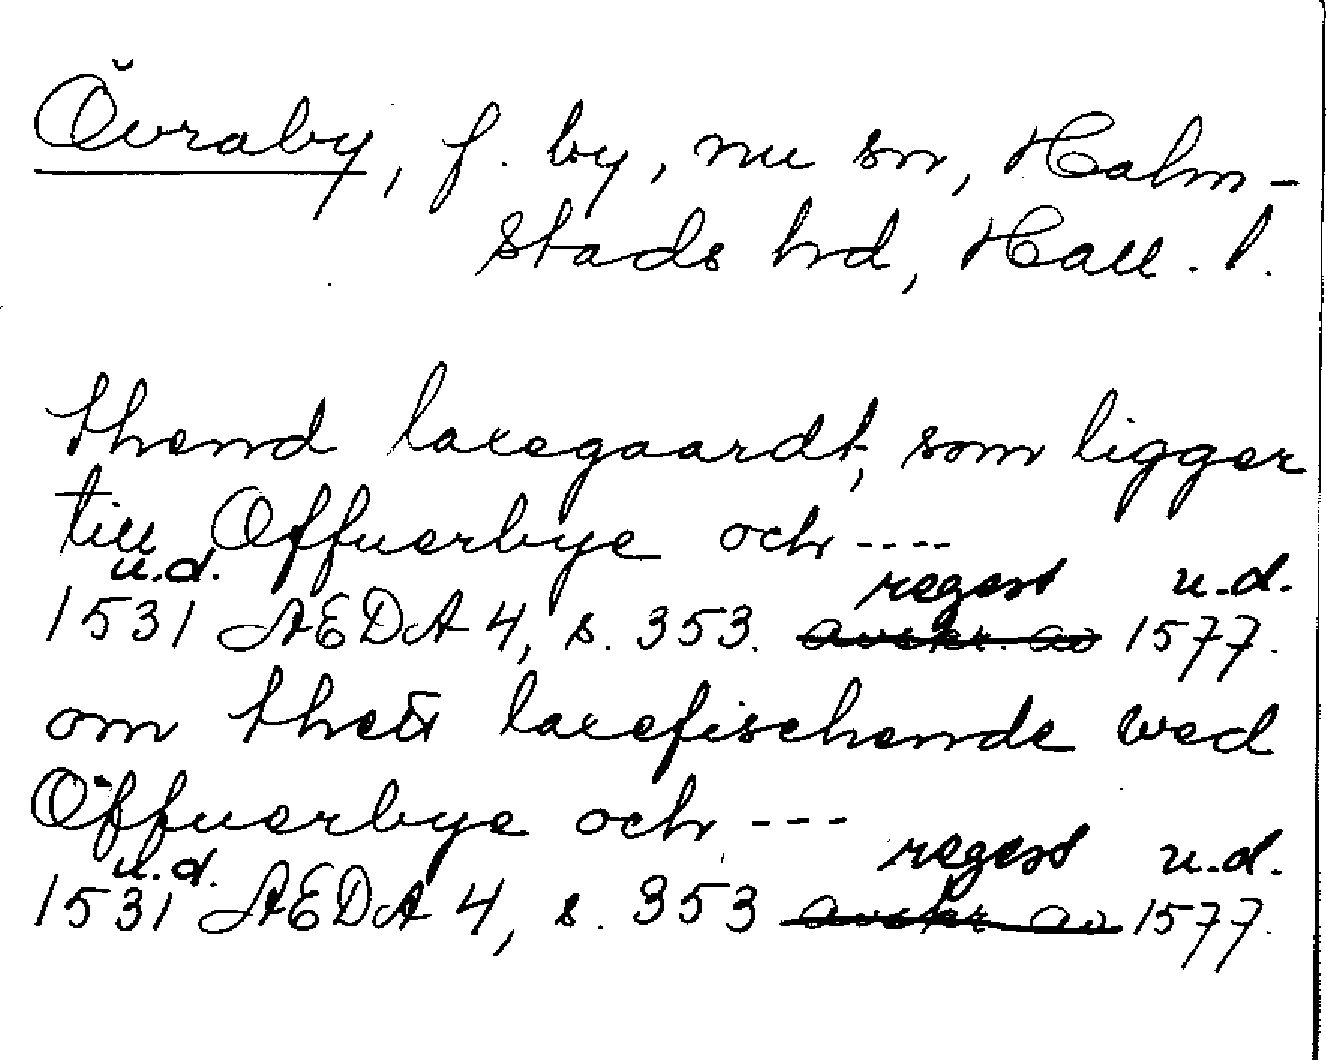 Övraby, f. by, nu sn, Halm-
stads hd, Hall. l.
thend laxegaardt, som ligger
till Offuerbye och ----
u.d. regest u.d.
1531 AEDA 4, s. 353. avskr. av 1577.
om thett laxefischende wed
Öffuerbye och ---
u.d. regest u.d.
1531 AEDA 4, s. 353 avskr av 1577.